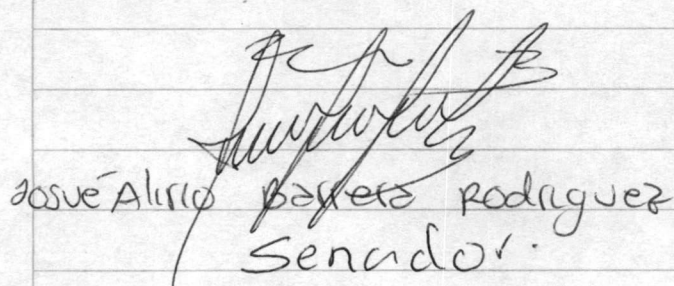 Josué Alirio Barrera Rodriguez
Senador.